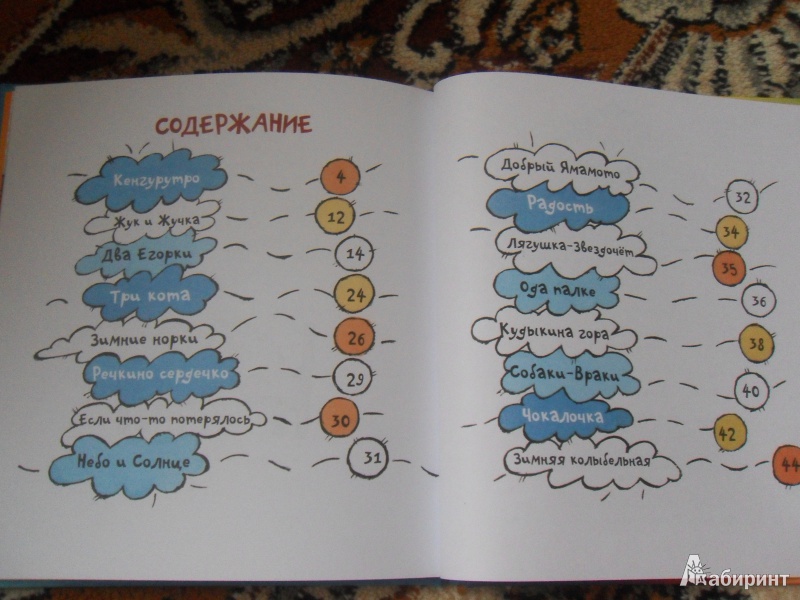 СОДЕРЖАНИЕ
Кенгурутро 4
Жук и Жучка 12
Два Егорки 14
Три кота 24
Зимние норки 26
Речкино сердечко 29
Если что-то потерялось 30
Небо и Солнце 31
Добрый Ямамото 32
Радость 34
Лягушка-Звездочёт 35
Ода палке 36
Кудыкина гора 38
Собаки-Враки 40
Чокалочка 42
Зимняя колыбельная 44
Лабиринт